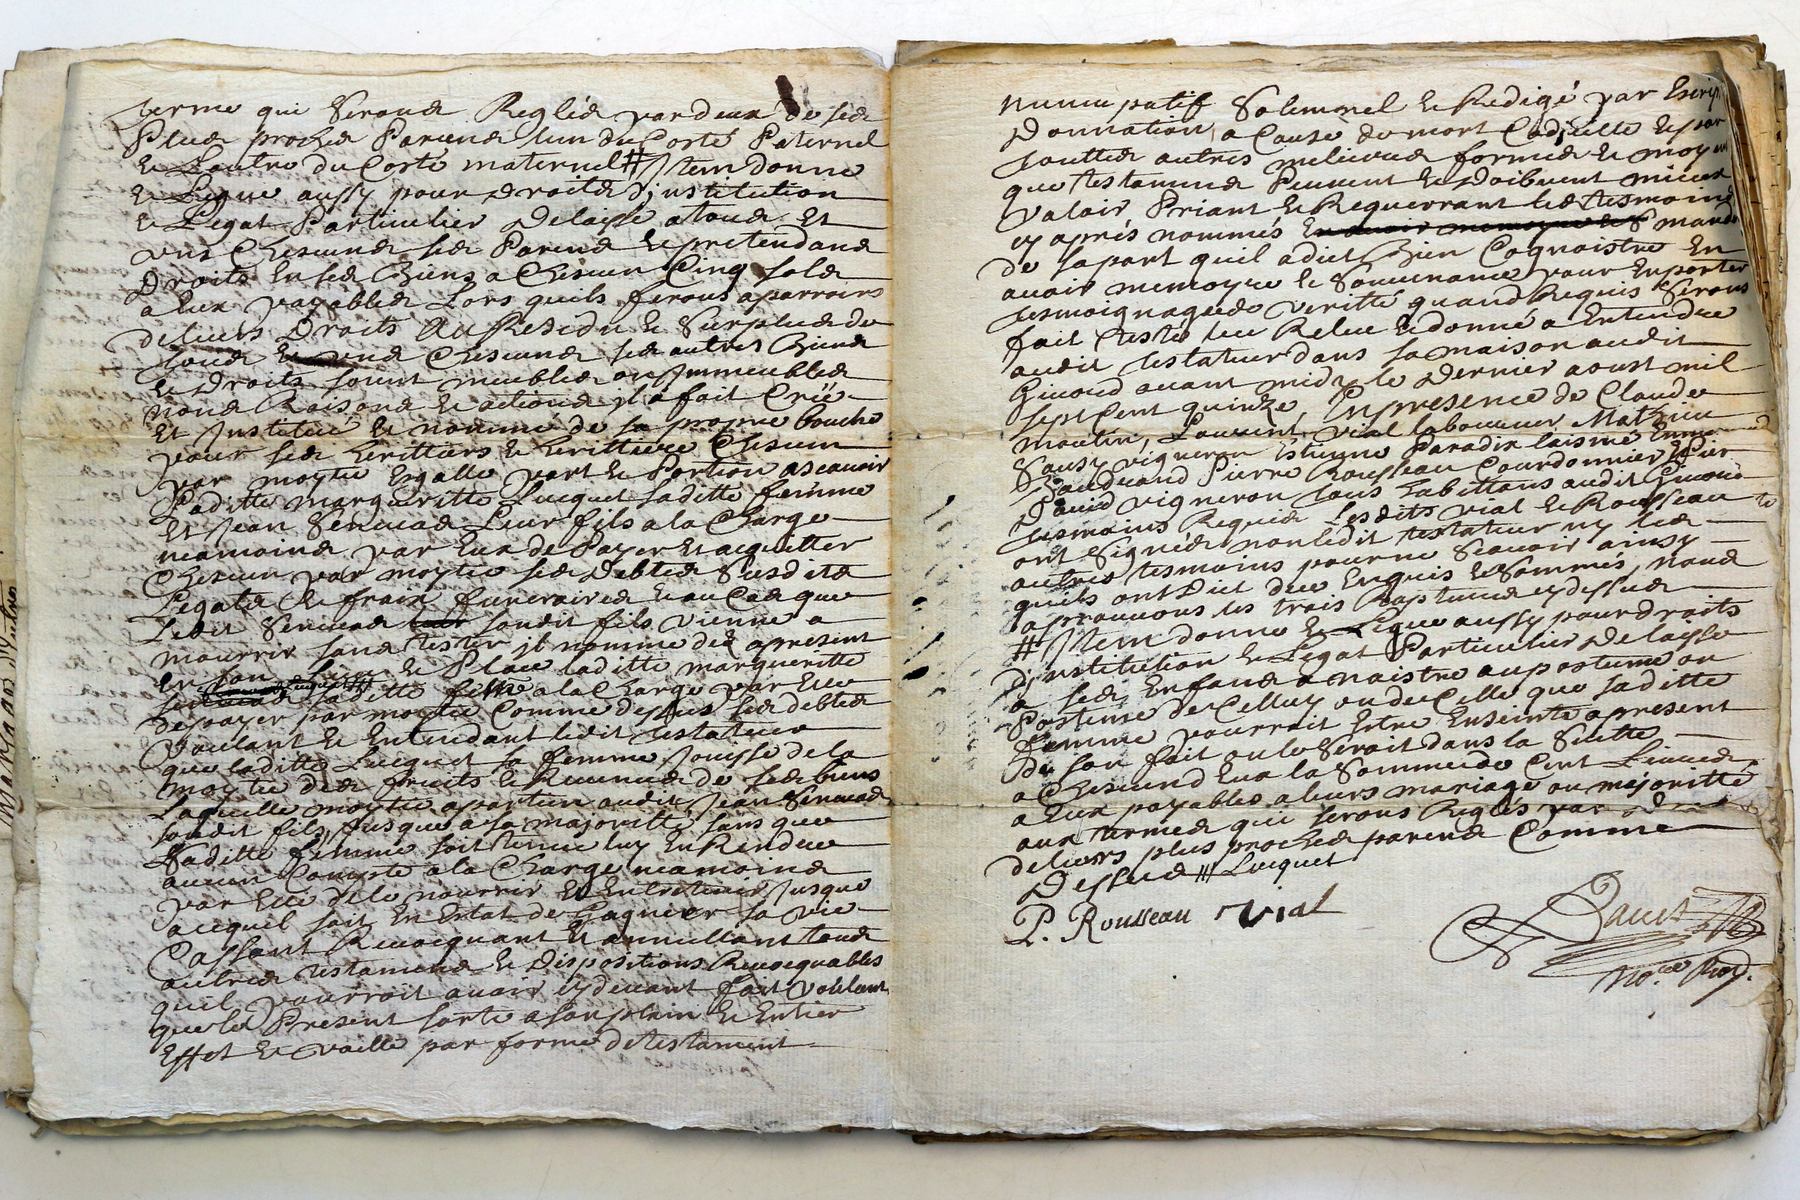 terme qui Seronts Reglés par deux de ses
Plus proches Parents lun du Costé Paternel
Et Lautre du Costé maternel # Item donne
Et Legue aussy pour droits d'institution
Et Legat Particulier Delaisse a tous Et
uns Chescuns ses Parents Et pretendans
Droits En ses Biens a Chescun Cinq sols
a Eux payables Lors quils feront aparroirs
de leurs Droits Au Residu Et Surplus de
tous Et uns Chescuns ses autres Biens
Et Droits soint meubles ou Jmmeubles
noms Raisons Et actions yl a fait Créé
Et Jnstitué Et nommé de sa propre bouche
pour ses heritiers Et herittiere Chescun
par moytie Esgalle part Et Portion ascauoir
Laditte margueritte Lucquet saditte femme
Et Jean Leur fils a la Charge
neamoins par Eux de Payer Et acquitter
Chescun par moytie ses Debtes Susdits
Legats Et fraix funeraires Et au Cas que
Ledit sondit fils vienne a
mourrir sans tester jl nomme dez apresent
En son Lieu Et Place laditte margueritte
Lucquet saditte femme a la Charge par Elle
de payer par moytie Comme dessus ses debtes
Voulant Et Entendant ledit testateur
que laditte Lucquet sa femme Jouisse de la
moytie des fruits Et Reuenus de ses biens
Laquelle moytie apartien audit Jean
sondit fils Jusques a sa majoritte sans que
Saditte femme soit tenue luy En Rendre
aucun Compte a la Charge neamoins
par Elle de le nourrir Et Entretenir Jusque
acequel soit En Estat de Gagnier sa vie
Cassant Reuocquant Et annullant tous
autres testaments Et Dispositions Reuocquables
quil pourroit auoir cydeuant fait Voulant
que le Present sorte a son plain Et Entier
Effet Et vaille par forme de testament
nuncupatif Solemnel Et Redigé par Escript
Donnation a Cause de mort Codicille Et par
touttes autres melieures formes Et moyens
que testaments Peuuent Et Doibuent mieux
Valoir Priant Et Requerrant les tesmoins
cy aprés nommés mandés
de sa part quil a dict Bien Cognoistre En
auoir memoyre Et Souuenance pour En porter
tesmoignage de veritté quand Requis Seront
fait testé leu Releu Et donné a Entendre
audit testateur dans sa maison audit
Giuord auant midy le Dernier aoust mil
sept Cent quinze, En presence de Claude
moulin, Laurent vial laboureur, Mathieu
vigneron Estienne Paradis laisné
Pierre Rousseau Courdonnier
Dauid vigneron tous habittans audit Giuord
tesmoins Requis lesdits vial Et Rousseau
ont Signés non ledit testateur ny les
autres tesmoins pour ne Scauoir ainsy
quils ont Dict de ce Enquis Et Sommés, nous
aprouuons les trois Raptures cy dessus
# Jtem donne Et Legue aussy pour droits
D'jnstitution Et Legat Particulier Delaisse
a ses Enfans a naistre au postume ou
Postume de Celluy ou de Celle que saditte
femme pourroit Estre Enseinte apresent
de son fait ou le Seroit dans la Suitte
a Chescund Eux la Somme de Cent Liures
a Eux payables a leurs mariage ou majoritté
aux termes qui seront Reglés par deux
de leurs plus proches parens Comme
Dessus /// Lucquet
P. Rousseau Vial
No.re Roy.